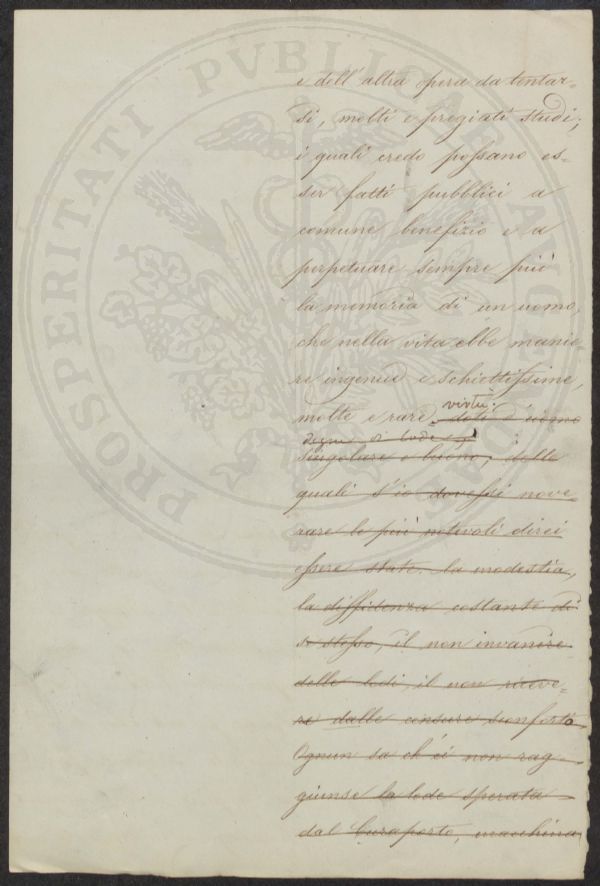 PROSPERITATI PVBLICAE AVGENDAE
e dell'altra opera da tentar-
si, molti e pregiati studi;
i quali credo possano es-
ser fatti pubblici a
comune benefizio e a
perpetuare sempre più
la memoria di un uomo,
che nella vita ebbe manie-
re ingenue e schiettissime,
virtù.
molte e rare doti d'uomo
degne di lode
singolare e buono, delle
quali s'io dovessi nove-
rare le più notevoli direi
essere state la modestia,
la diffidenza costante di
se stesso, il non invanire
delle lodi, il non riceve-
re dalle censure sconforto.
Ognun sa ch'ei non rag-
giunse la lode sperata
dal Curaporto, macchina